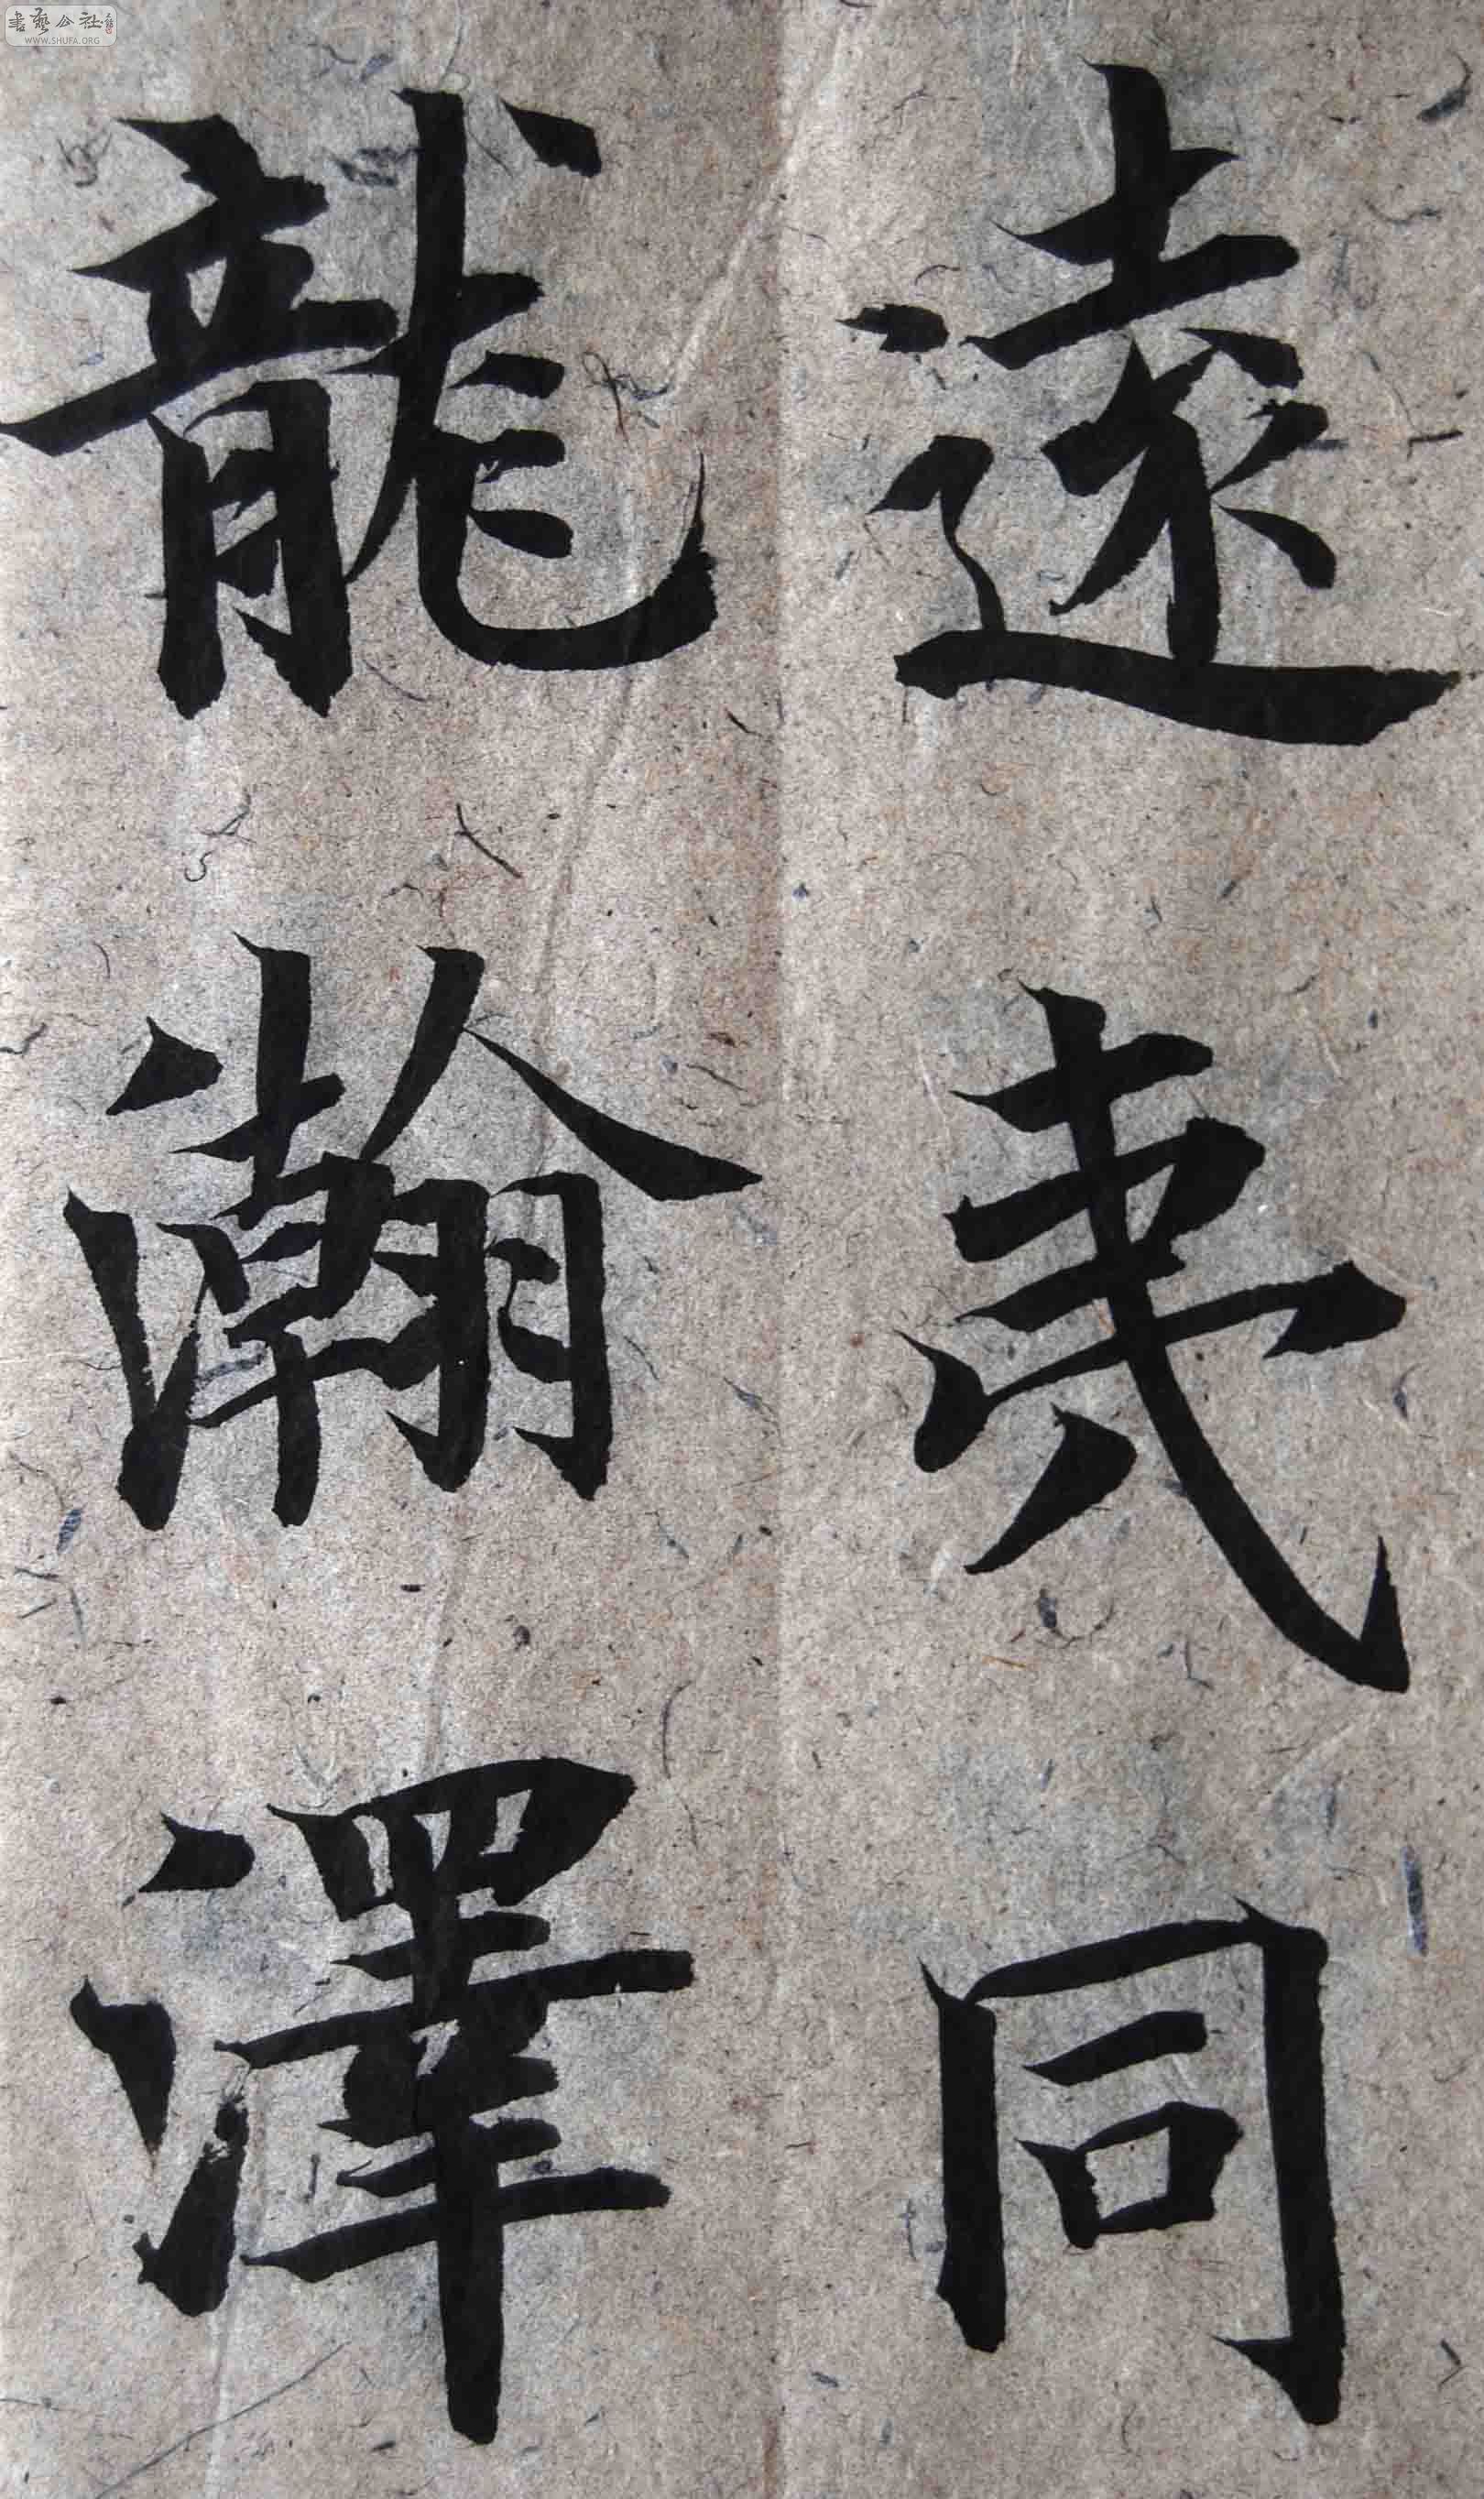 書藝公社
WWW.SHUFA.ORG
遠 同
龍瀚澤